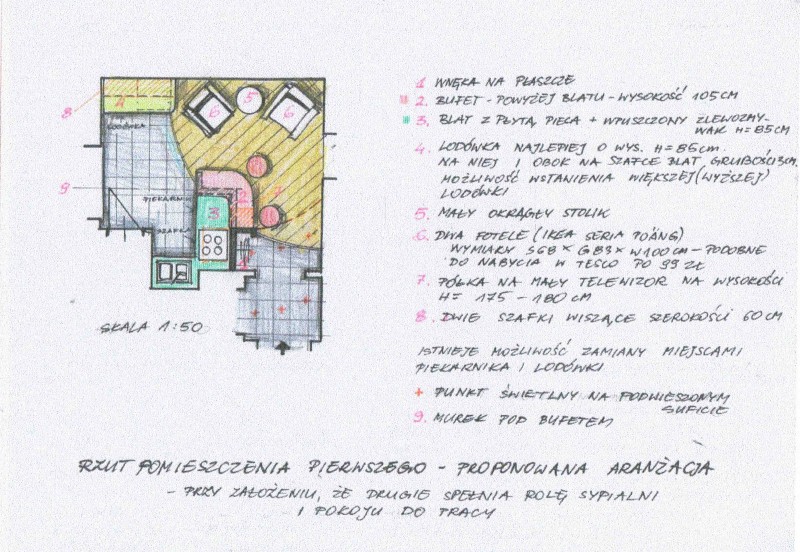 8
4
LODÓWKA
6
5
6
9
PIEKARNIK
3
2
7
SZAFKA
1
SKALA 1:50
1 WNĘKA NA PŁASZCZE
2. BUFET - POWYŻEJ BLATU - WYSOKOŚĆ 105 CM
3. BLAT Z PŁYTĄ PIECA + WPUSZCZONY ZLEWOZMY-
WAK H=85CM
4. LODÓWKA NAJLEPIEJ O WYS. H=85CM.
NA NIEJ I OBOK NA SZAFCE BLAT GRUBOŚCI 3CM,
MOŻLIWOŚĆ WSTANIENIA WIĘKSZEJ (WYŻSZEJ)
LODÓWKI
5. MAŁY OKRĄGŁY STOLIK
6. DWA FOTELE (IKEA SERIA POÄNG)
WYMIARY S68 × G83 × W100 CM - PODOBNE
DO NABYCIA W TESCO PO 99 ZŁ
7. PÓŁKA NA MAŁY TELEWIZOR NA WYSOKOŚCI
H= 175 - 180 CM
8. DWIE SZAFKI WISZĄCE SZEROKOŚCI 60 CM
ISTNIEJE MOŻLIWOŚĆ ZAMIANY MIEJSCAMI
PIEKARNIKA I LODÓWKI
+ PUNKT ŚWIETLNY NA PODWIESZONYM
SUFICIE
9. MUREK POD BUFETEM
RZUT POMIESZCZENIA PIERWSZEGO - PROPONOWANA ARANŻACJA
- PRZY ZAŁOŻENIU, ŻE DRUGIE SPEŁNIA ROLĘ SYPIALNI
I POKOJU DO PRACY